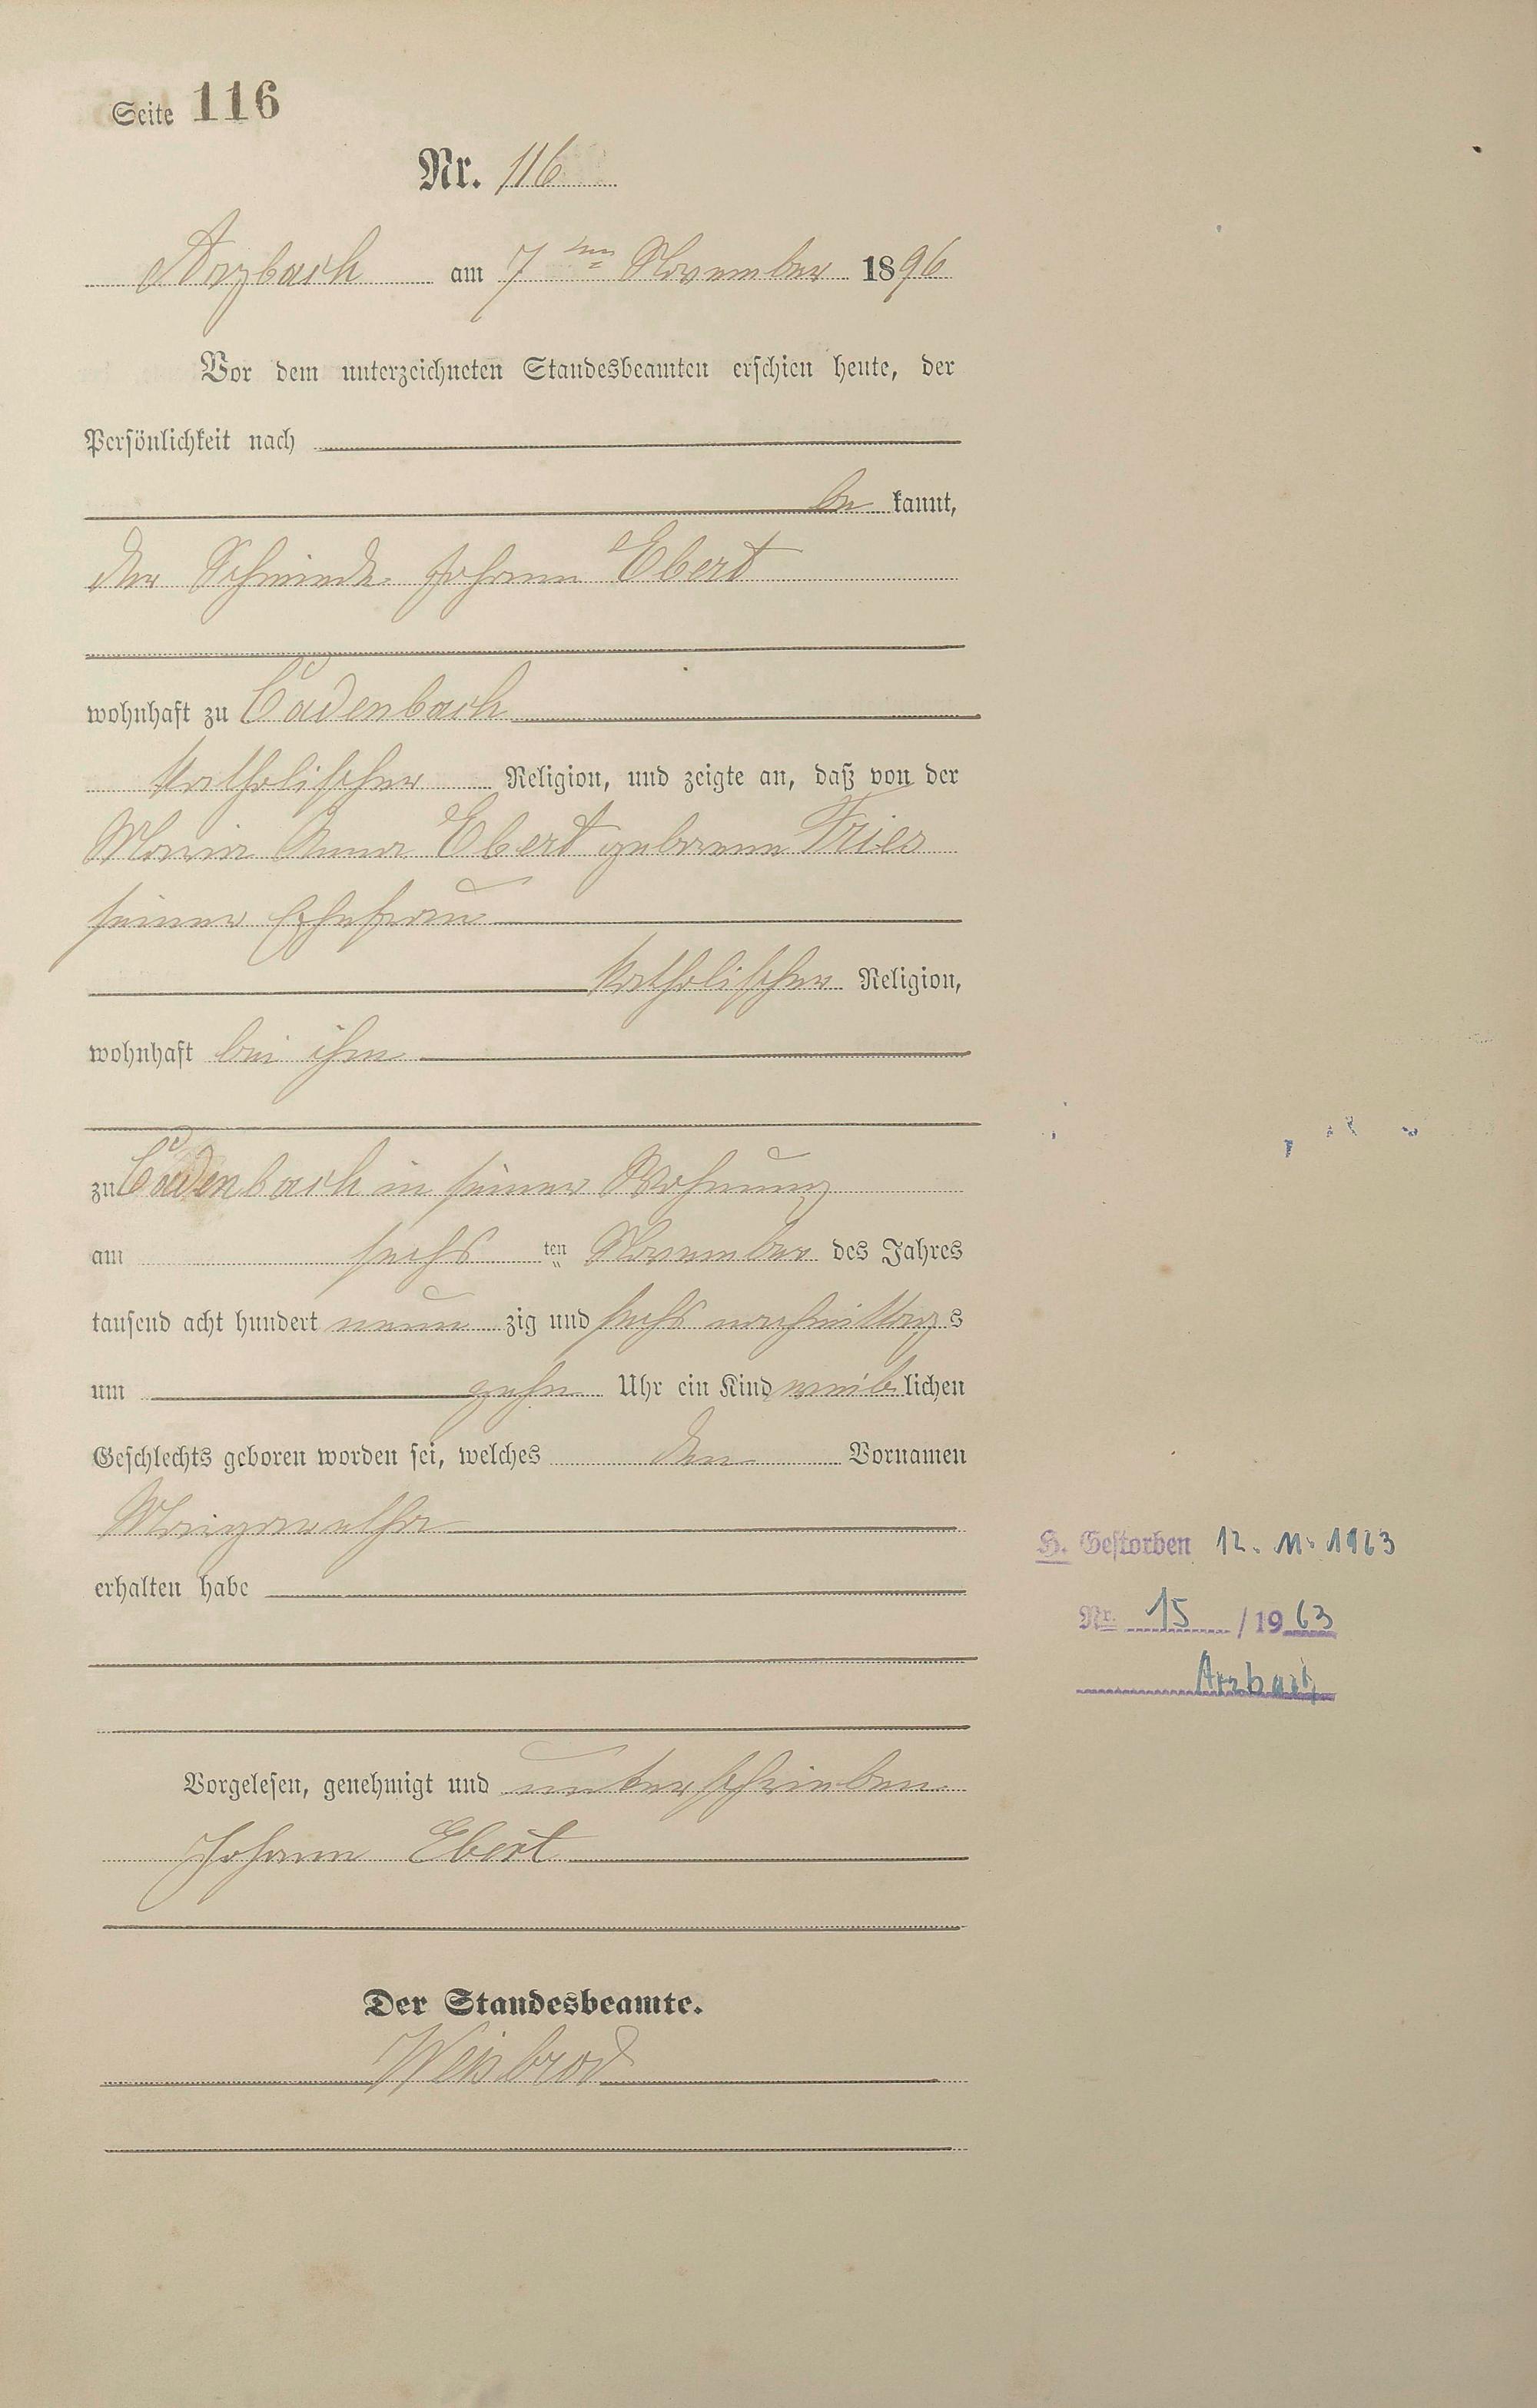 Seite 116
Nr. 116
Arzbach am 7ten November 1896
Vor dem unterzeichneten Standesbeamten erschien heute, der
Persönlichkeit nach
be kannt,
der Schmied Johann Ebert
wohnhaft zu Cadenbach
katholischer Religion, und zeigte an, daß von der
Maria Anna Ebert geborene Fries
seiner Ehefrau
katholischer Religion,
wohnhaft bei ihm
zu Cadenbach in seiner Wohnung
am sechs ten November des Jahres
tausend acht hundert neun zig und sechs nachmittags
um zehn Uhr ein Kind weiblichen
Geschlechts geboren worden sei, welches den Vornamen
Margaretha
erhalten habe
H. Gestorben 12. 11. 1963
Nr. 15 / 1963
Arzbach
Vorgelesen, genehmigt und unterschrieben
Johann Ebert
Der Standesbeamte.
Weisbrod